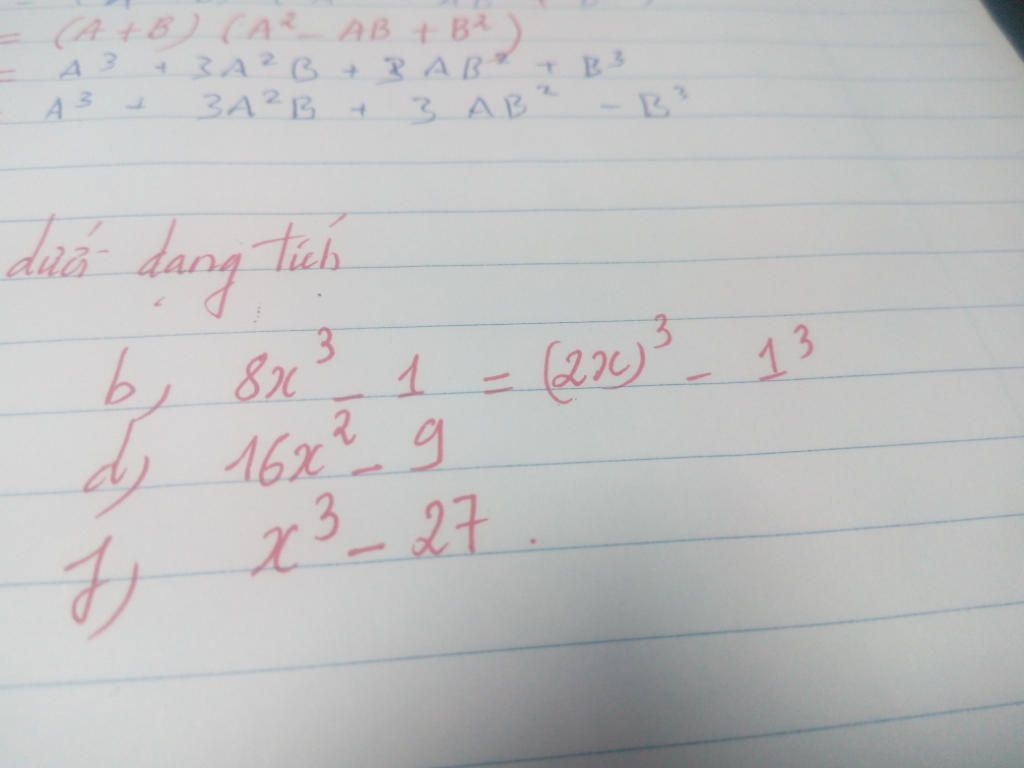 = (A + B) (A² - AB + B²)
= A³ + 3A²B + 3AB² + B³
A³ + 3A²B + 3AB² - B³
dưới dạng tích
b, 8x³ - 1 = (2x)³ - 1³
d, 16x² - 9
f, x³ - 27.